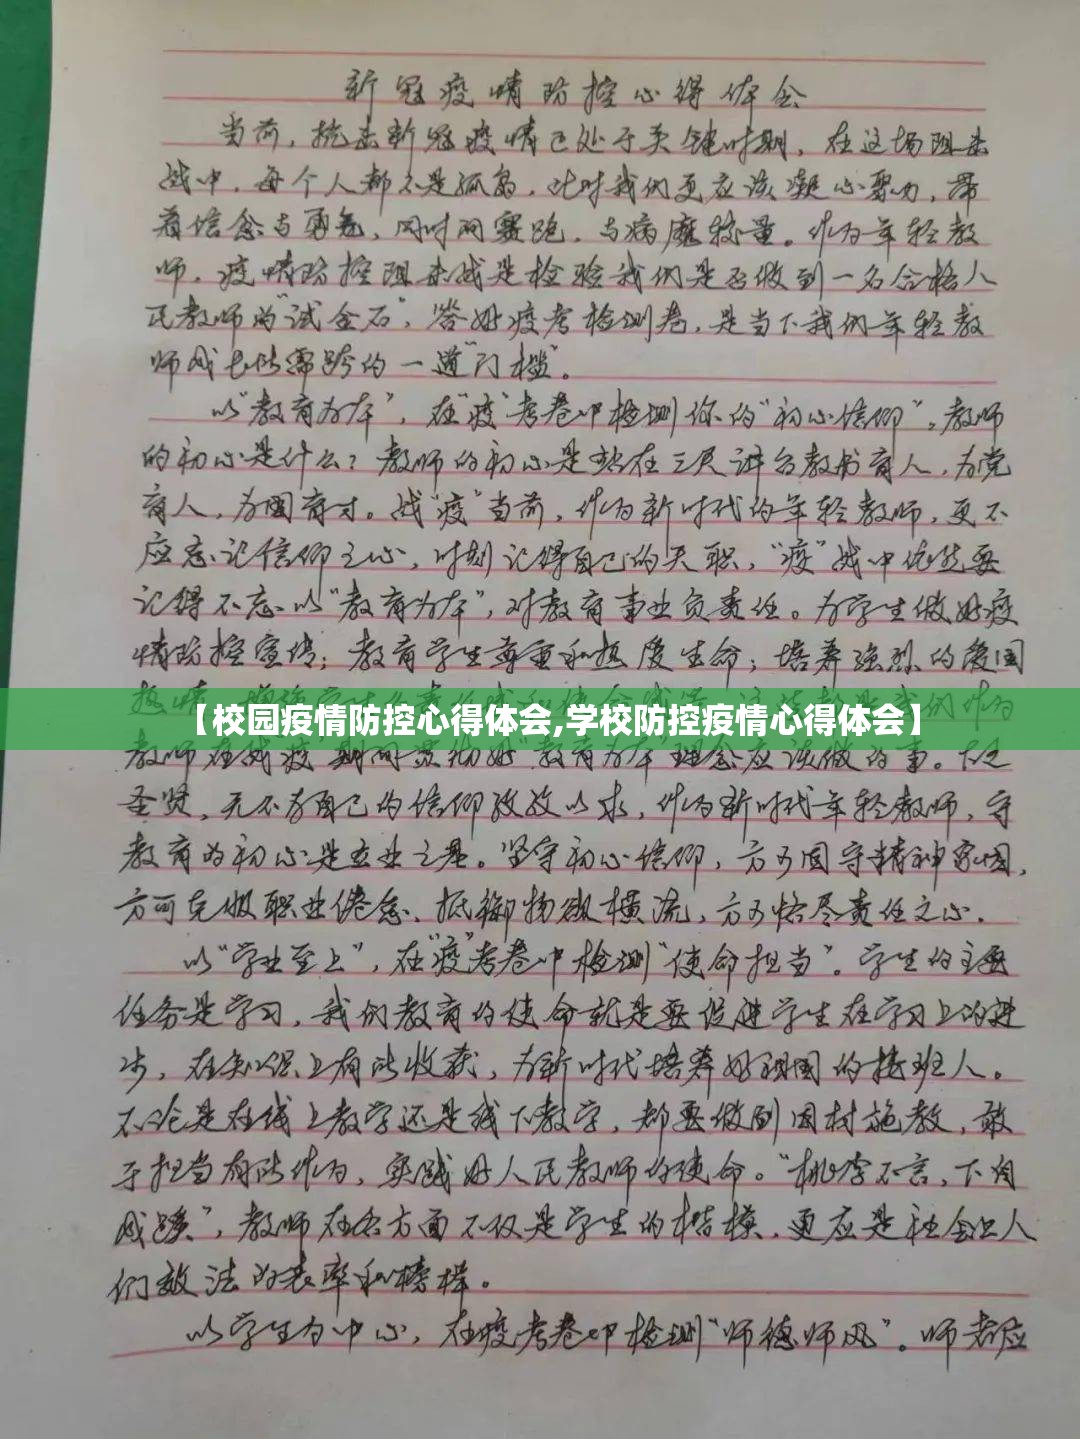 新冠疫情防控心得体会
当前，抗击新冠疫情已处于关键时期，在这场阻击
战中，每个人都不是孤岛，此时我们更应该凝心聚力，带
着信念与勇气，同时间赛跑，与病魔较量。作为年轻教
师，疫情防控阻击战是检验我们是否做到一名合格人
民教师的“试金石”，答好疫考检测卷，是当下我们年轻教
师成长所需跨的一道“门槛”。
以“教育为本”，在“疫”考卷中检测你的“初心信仰”。教师
的初心是什么？教师的初心是站在三尺讲台教书育人，为党
育人，为国育才。战“疫”当前，作为新时代的年轻教师，更不
应忘记信仰之心，时刻记得自己的天职，“疫”战中依然要
记得不忘以“教育为本”，对教育事业负责任。为学生做好疫
情防控宣传；教育学生尊重和热爱生命；培养强烈的爱国
【校园疫情防控心得体会,学校防控疫情心得体会】
教师在战“疫”期间贯彻好“教育为本”理念应该做的事。古之
圣贤，无不为自己的信仰孜孜以求，作为新时代年轻教师，守
教育的初心是立业之基。坚守初心信仰，方可固守精神家园，
方可克服职业倦怠、抵御物欲横流，方可恪尽责任之心。
以“学业至上”，在“疫”考卷中检测“使命担当”。学生的主要
任务是学习，我们教育的使命就是要促进学生在学习上的进
步，在知识上有所收获，为新时代培养好祖国的接班人。
不论是在线上教学还是线下教学，都要做到因材施教，敢
于担当有所作为，实践好人民教师的使命。“桃李不言，下自
成蹊”，教师在各方面不仅是学生的楷模，更应是社会上人
们效法的表率和榜样。
以学生为中心，在疫考卷中检测“师德师风”。师者应